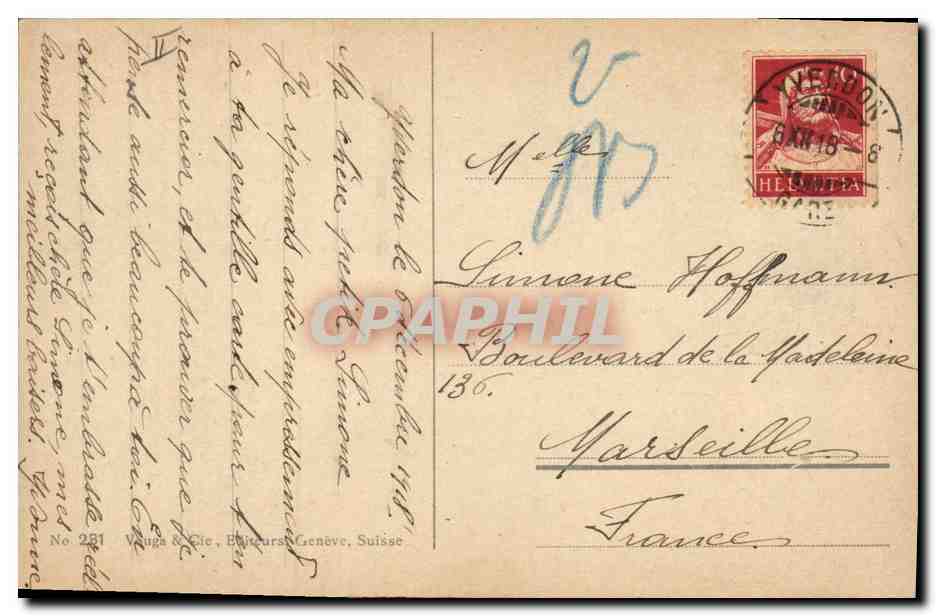 Yverdon le 6 décembre 1918
Ma chère petite Simone
Je réponds avec empressement
à ta gentille carte pour t'en
remercier, et te prouver que je
pense aussi beaucoup à toi. En
attendant que je t'embrasse réel
lement, reçois chère Simone, mes
meilleurs baisers. Yvonne
V
Melle
Simone Hoffmann
Boulevard de la Madeleine
136.
Marseille
France.
10
HELVETIA
YVERDON
6 XII 18 - 8
GARE
CPAPHIL
No 231 Vouga & Cie, Editeurs, Genève, Suisse